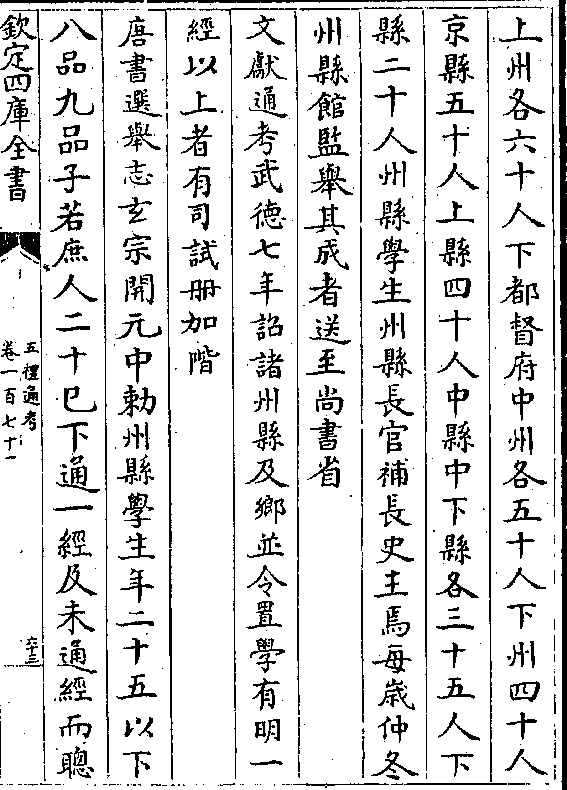 上州各六十人下都督府中州各五十人下州四十人
京縣五十人上縣四十人中縣中下縣各三十五人下
縣二十人州縣學生州縣長官補長史主焉每歲仲冬
州縣館監舉其成者送至尚書省
文獻通考武德七年詔諸州縣及鄉並令置學有明一
經以上者有司試册加階
唐書選舉志玄宗開元中勅州縣學生年二十五以下
八品九品子若庶人二十已下通一經及未通經而聰
欽定四庫全書
五禮通考
卷一百七十一
六十三